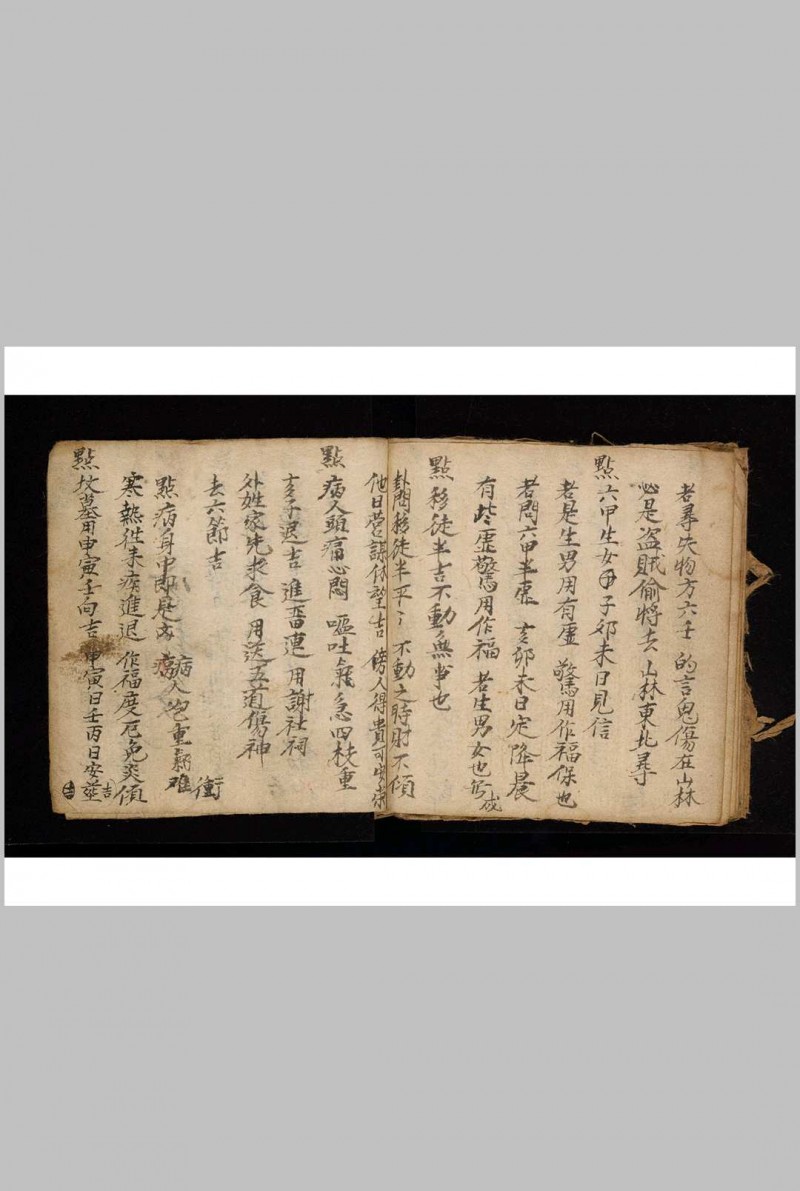 若尋失物方六壬 的言鬼傷在山林
必是盗賊偷將去 山林東北尋
點六甲生女 子卯未日見信
若是生男用有虛 驚用作福保也
若問六甲半虛 亥卯未日定降晨
有些虛驚用作福 若生男女也 成
點移徒半吉不動無事也
卦問移徒半平〻 不動之時財不傾
他日營謀休望吉 傍人得貴可 求
點病人頭痛心悶 嘔吐氣急四枝重
亥子退吉 進 連 用謝社祠
外姓家先求食 用送五道傷神
去六節吉 衝
點病身中即是 病人 重 难
寒熱往来病進退 作福度厄免災傾
點墳墓用申寅壬向吉 申寅日壬丙日安葬吉 吉